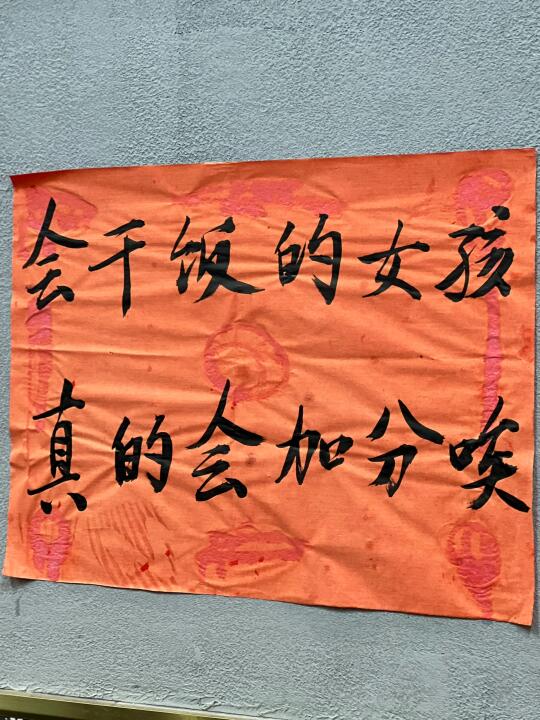 会干饭的女孩
真的会加分唉